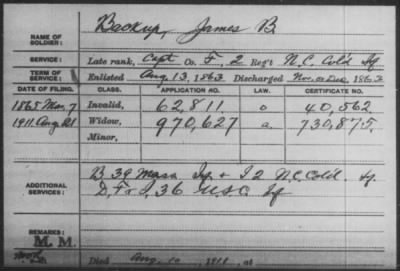 NAME OF SOLDIER: Backup, James B
SERVICE: Late rank, Capt Co. F, 2 Reg't N.C. Col'd Inf
TERM OF SERVICE: Enlisted Aug. 13, 1863 Discharged Nov. or Dec., 1863
DATE OF FILING. CLASS. APPLICATION NO. LAW. CERTIFICATE NO.
1865 Mar, 7 Invalid, 62,811 40,562
1911 Aug 21 Widow, 970,627 a. 730,875.
Minor,
ADDITIONAL SERVICES: B 39 Mass Inf + I 2 N.C. Col'd. Inf
D, F + I, 36 U.S.C. Inf
REMARKS:
M. M.
Died Aug. 10, 1911, at